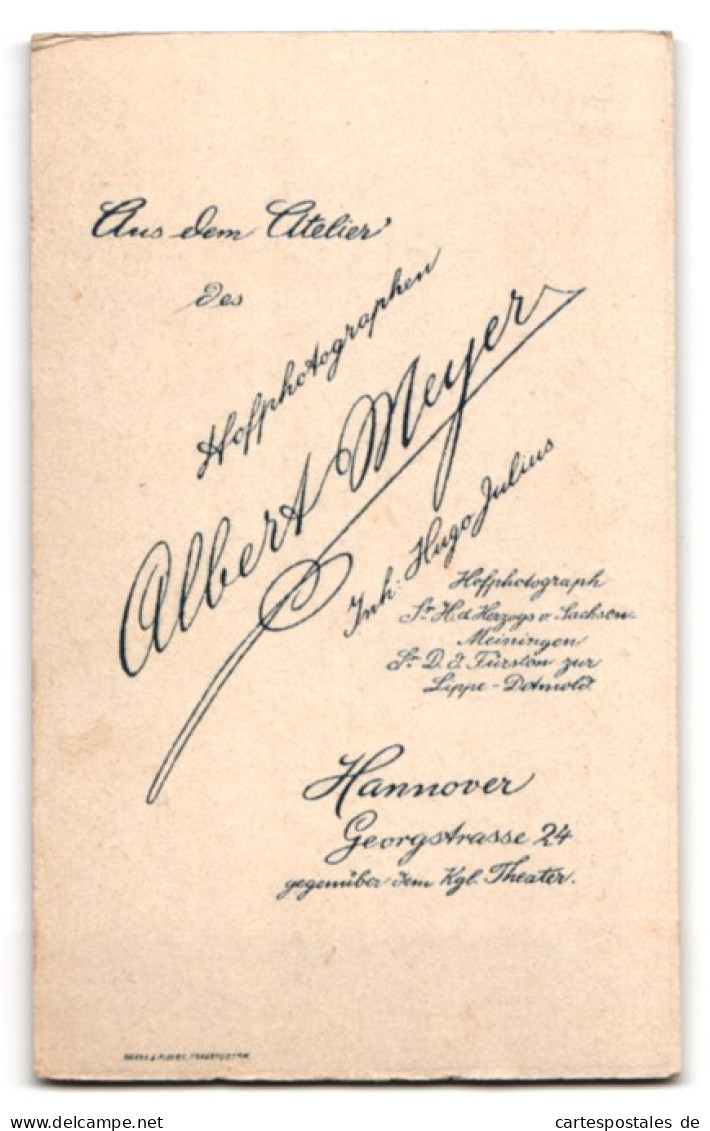 Aus dem Atelier
des
Hofphotographen
Albert Meyer
Inh: Hugo Julius
Hofphotograph
Sr. H. d. Herzogs v. Sachsen-
Meiningen
Sr. D. d. Fürsten zur
Lippe-Detmold.
Hannover
Georgstrasse 24
gegenüber dem Kgl. Theater.
delcampe.net
cartespostales de